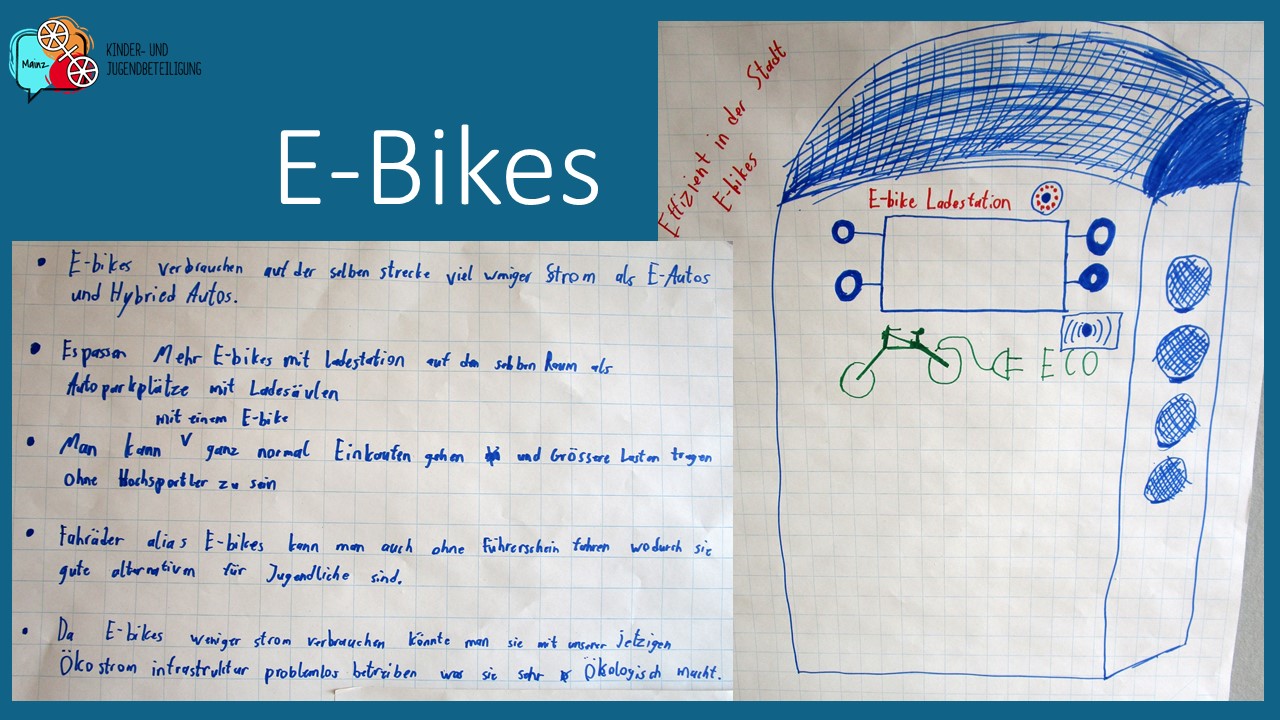 Mainz
KINDER- UND
JUGENDBETEILIGUNG
E-Bikes
• E-bikes verbrauchen auf der selben strecke viel weniger Strom als E-Autos
und Hybried Autos.
• Es passen Mehr E-bikes mit Ladestation auf den selben Raum als
Autoparkplätze mit Ladesäulen
mit einem E-bike
• Man kann V ganz normal Einkaufen gehen und Grössere Lasten tragen
ohne Hochsportler zu sein
• Fahräder alias E-bikes kann man auch ohne Führerschein fahren wodurch sie
gute alternativen für Jugendliche sind.
• Da E-bikes weniger strom verbrauchen könnte man sie mit unserer jetzigen
Ökostrom infrastruktur problemlos betreiben was sie sehr Ökologisch macht.
Effizient in der Stadt
E-bikes
E-bike Ladestation
ECO